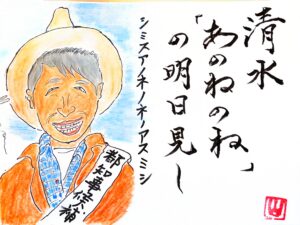 清水
「あのねのね」
の明日見し
シミズアノネノネーアスミシ
都知事候補